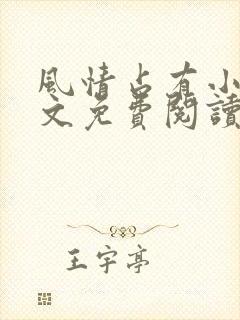 風情占有小
文免費閱讀
王宇亭